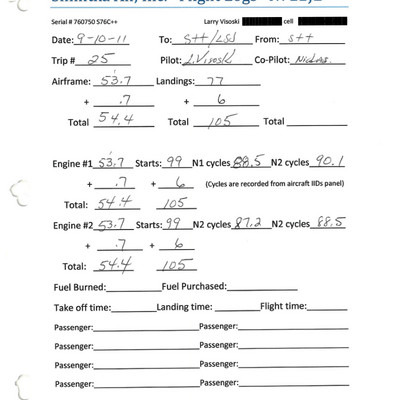 Serial # 760750 S76C++ Larry Visoski cell
Date: 9-10-11 To: STT/LSJ From: STT
Trip # 25 Pilot: L. Visoski Co-Pilot:
Airframe: 53.7 Landings: 77
+ .7 + 6
Total 54.4 Total 105 Total
Engine #1 53.7 Starts: 99 N1 cycles 88.5 N2 cycles 90.1
+ .7 + 6 (Cycles are recorded from aircraft IIDs panel)
Total: 54.4 105
Engine #2 53.7 Starts: 99 N2 cycles 87.2 N2 cycles 88.5
+ .7 + 6
Total: 54.4 105
Fuel Burned: Fuel Purchased:
Take off time: Landing time: Flight time:
Passenger: Passenger:
Passenger: Passenger:
Passenger: Passenger:
Passenger: Passenger: